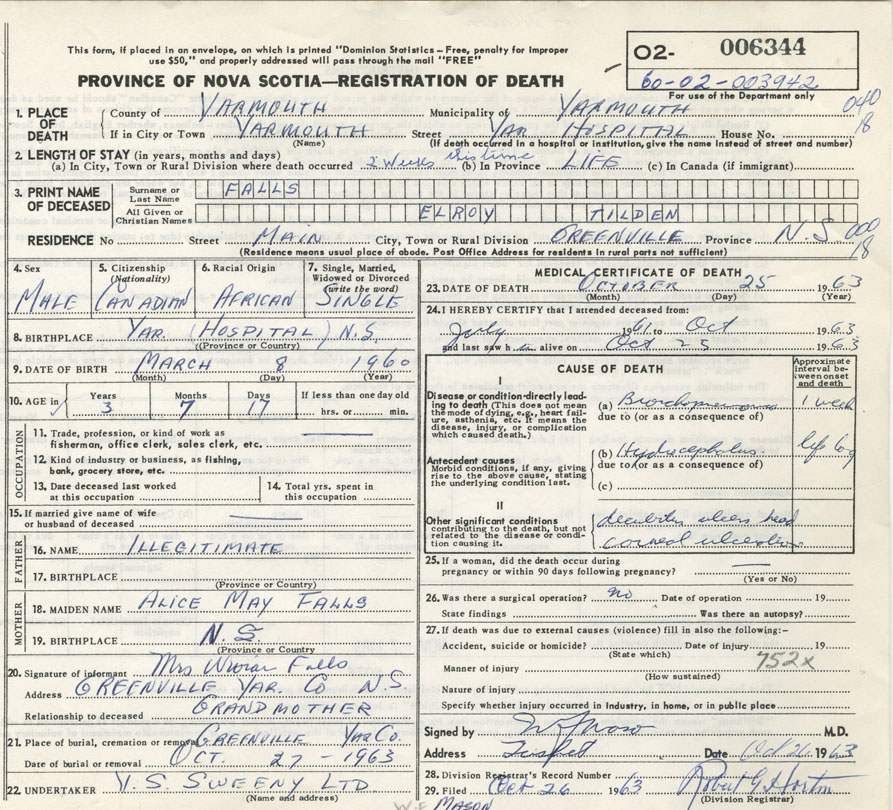 This form, if placed in an envelope, on which is printed "Dominion Statistics – Free, penalty for improper
use $50," and properly addressed will pass through the mail "FREE"
PROVINCE OF NOVA SCOTIA—REGISTRATION OF DEATH
O2- 006344
60-02-003942
For use of the Department only
040
18
1. PLACE OF DEATH
County of YARMOUTH Municipality of YARMOUTH
If in City or Town YARMOUTH Street YAR HOSPITAL House No.
(Name) (If death occurred in a hospital or institution, give the name instead of street and number)
2. LENGTH OF STAY (in years, months and days)
(a) In City, Town or Rural Division where death occurred 2 Weeks this time (b) In Province LIFE (c) In Canada (if immigrant)
3. PRINT NAME OF DECEASED
Surname or Last Name FALLS
All Given or Christian Names ELROY TILDEN
RESIDENCE No Street MAIN City, Town or Rural Division GREENVILLE Province N.S. 000
18
(Residence means usual place of abode. Post Office Address for residents in rural parts not sufficient)
4. Sex MALE
5. Citizenship (Nationality) CANADIAN
6. Racial Origin AFRICAN
7. Single, Married, Widowed or Divorced (write the word) SINGLE
8. BIRTHPLACE YAR. (HOSPITAL) N.S.
(Province or Country)
9. DATE OF BIRTH MARCH 8 1960
(Month) (Day) (Year)
10. AGE in Years 3 Months 7 Days 17 If less than one day old hrs. or min.
OCCUPATION
11. Trade, profession, or kind of work as
fisherman, office clerk, sales clerk, etc.
12. Kind of industry or business, as fishing,
bank, grocery store, etc.
13. Date deceased last worked at this occupation
14. Total yrs. spent in this occupation
15. If married give name of wife
or husband of deceased
FATHER
16. NAME ILLEGITIMATE
17. BIRTHPLACE
(Province or Country)
MOTHER
18. MAIDEN NAME ALICE MAY FALLS
19. BIRTHPLACE N.S.
(Province or Country)
20. Signature of informant Mrs Falls
Address GREENVILLE YAR. CO N.S.
Relationship to deceased GRANDMOTHER
21. Place of burial, cremation or removal GREENVILLE YAR CO.
Date of burial or removal OCT. 27 - 1963
22. UNDERTAKER V.S. SWEENY LTD
(Name and address)
MEDICAL CERTIFICATE OF DEATH
23. DATE OF DEATH OCTOBER 25 1963
(Month) (Day) (Year)
24. I HEREBY CERTIFY that I attended deceased from:
July 1961 to Oct 1963
and last saw h im alive on Oct 25 1963
CAUSE OF DEATH
Approximate interval between onset and death
I
Disease or condition directly leading to death (This does not mean the mode of dying, e.g., heart failure, asthenia, etc. It means the disease, injury, or complication which caused death.)
(a) Bronchopneumonia 1 week
due to (or as a consequence of)
Antecedent causes
Morbid conditions, if any, giving rise to the above cause, stating the underlying condition last.
(b) Hydrocephalus life long
due to (or as a consequence of)
(c)
II
Other significant conditions
contributing to the death, but not related to the disease or condition causing it.
decubitus ulcers head
corneal ulceration
25. If a woman, did the death occur during
pregnancy or within 90 days following pregnancy?
(Yes or No)
26. Was there a surgical operation? no Date of operation 19
State findings Was there an autopsy?
27. If death was due to external causes (violence) fill in also the following:–
Accident, suicide or homicide? Date of injury 19
(State which)
752x
Manner of injury
(How sustained)
Nature of injury
Specify whether injury occurred in industry, in home, or in public place
Signed by M.D.
Address Tusket Date Oct 26 1963
28. Division Registrar's Record Number
29. Filed Oct 26 1963 Robert G Horton
(Division Registrar)
W.F. MASON